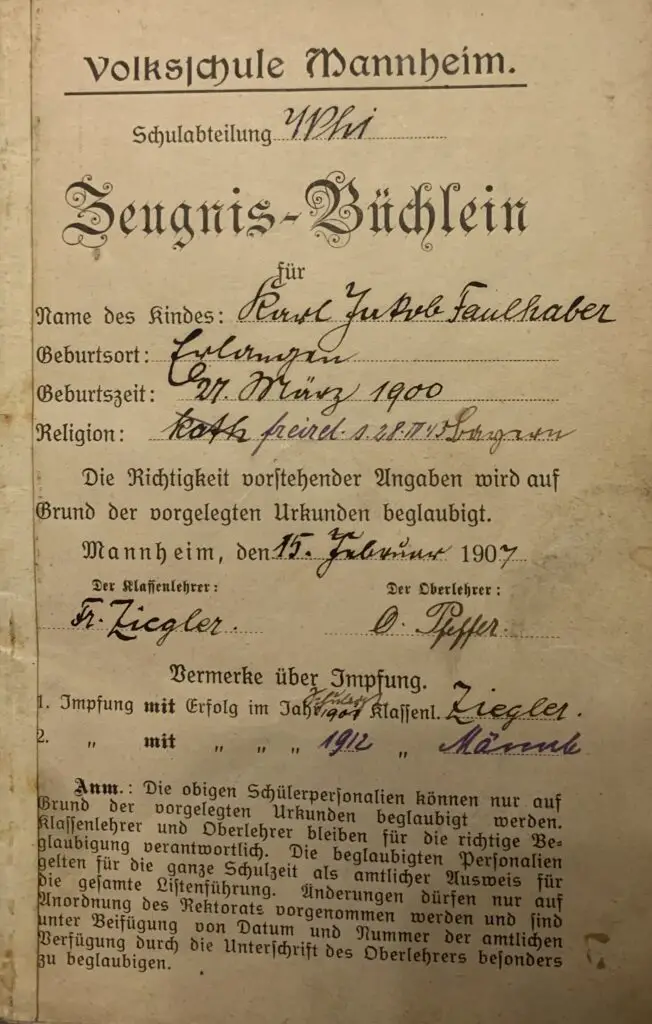 Volksschule Mannheim.
Schulabteilung
Zeugnis-Büchlein
für
Name des Kindes: Karl Jakob Faulhaber
Geburtsort: Erlangen
Geburtszeit: 27. März 1900
Religion: kath freirel. s. 28. Bayern
Die Richtigkeit vorstehender Angaben wird auf
Grund der vorgelegten Urkunden beglaubigt.
Mannheim, den 15. Februar 1907
Der Klassenlehrer: Der Oberlehrer:
Fr. Ziegler. O. Pfeffer.
Vermerke über Impfung.
1. Impfung mit Erfolg im Jahr 1901 Klassenl. Ziegler.
2. „ mit „ „ „ 1912 „
Anm.: Die obigen Schülerpersonalien können nur auf
Grund der vorgelegten Urkunden beglaubigt werden.
Klassenlehrer und Oberlehrer bleiben für die richtige Be-
glaubigung verantwortlich. Die beglaubigten Personalien
gelten für die ganze Schulzeit als amtlicher Ausweis für
die gesamte Listenführung. Änderungen dürfen nur auf
Anordnung des Rektorats vorgenommen werden und sind
unter Beifügung von Datum und Nummer der amtlichen
Verfügung durch die Unterschrift des Oberlehrers besonders
zu beglaubigen.